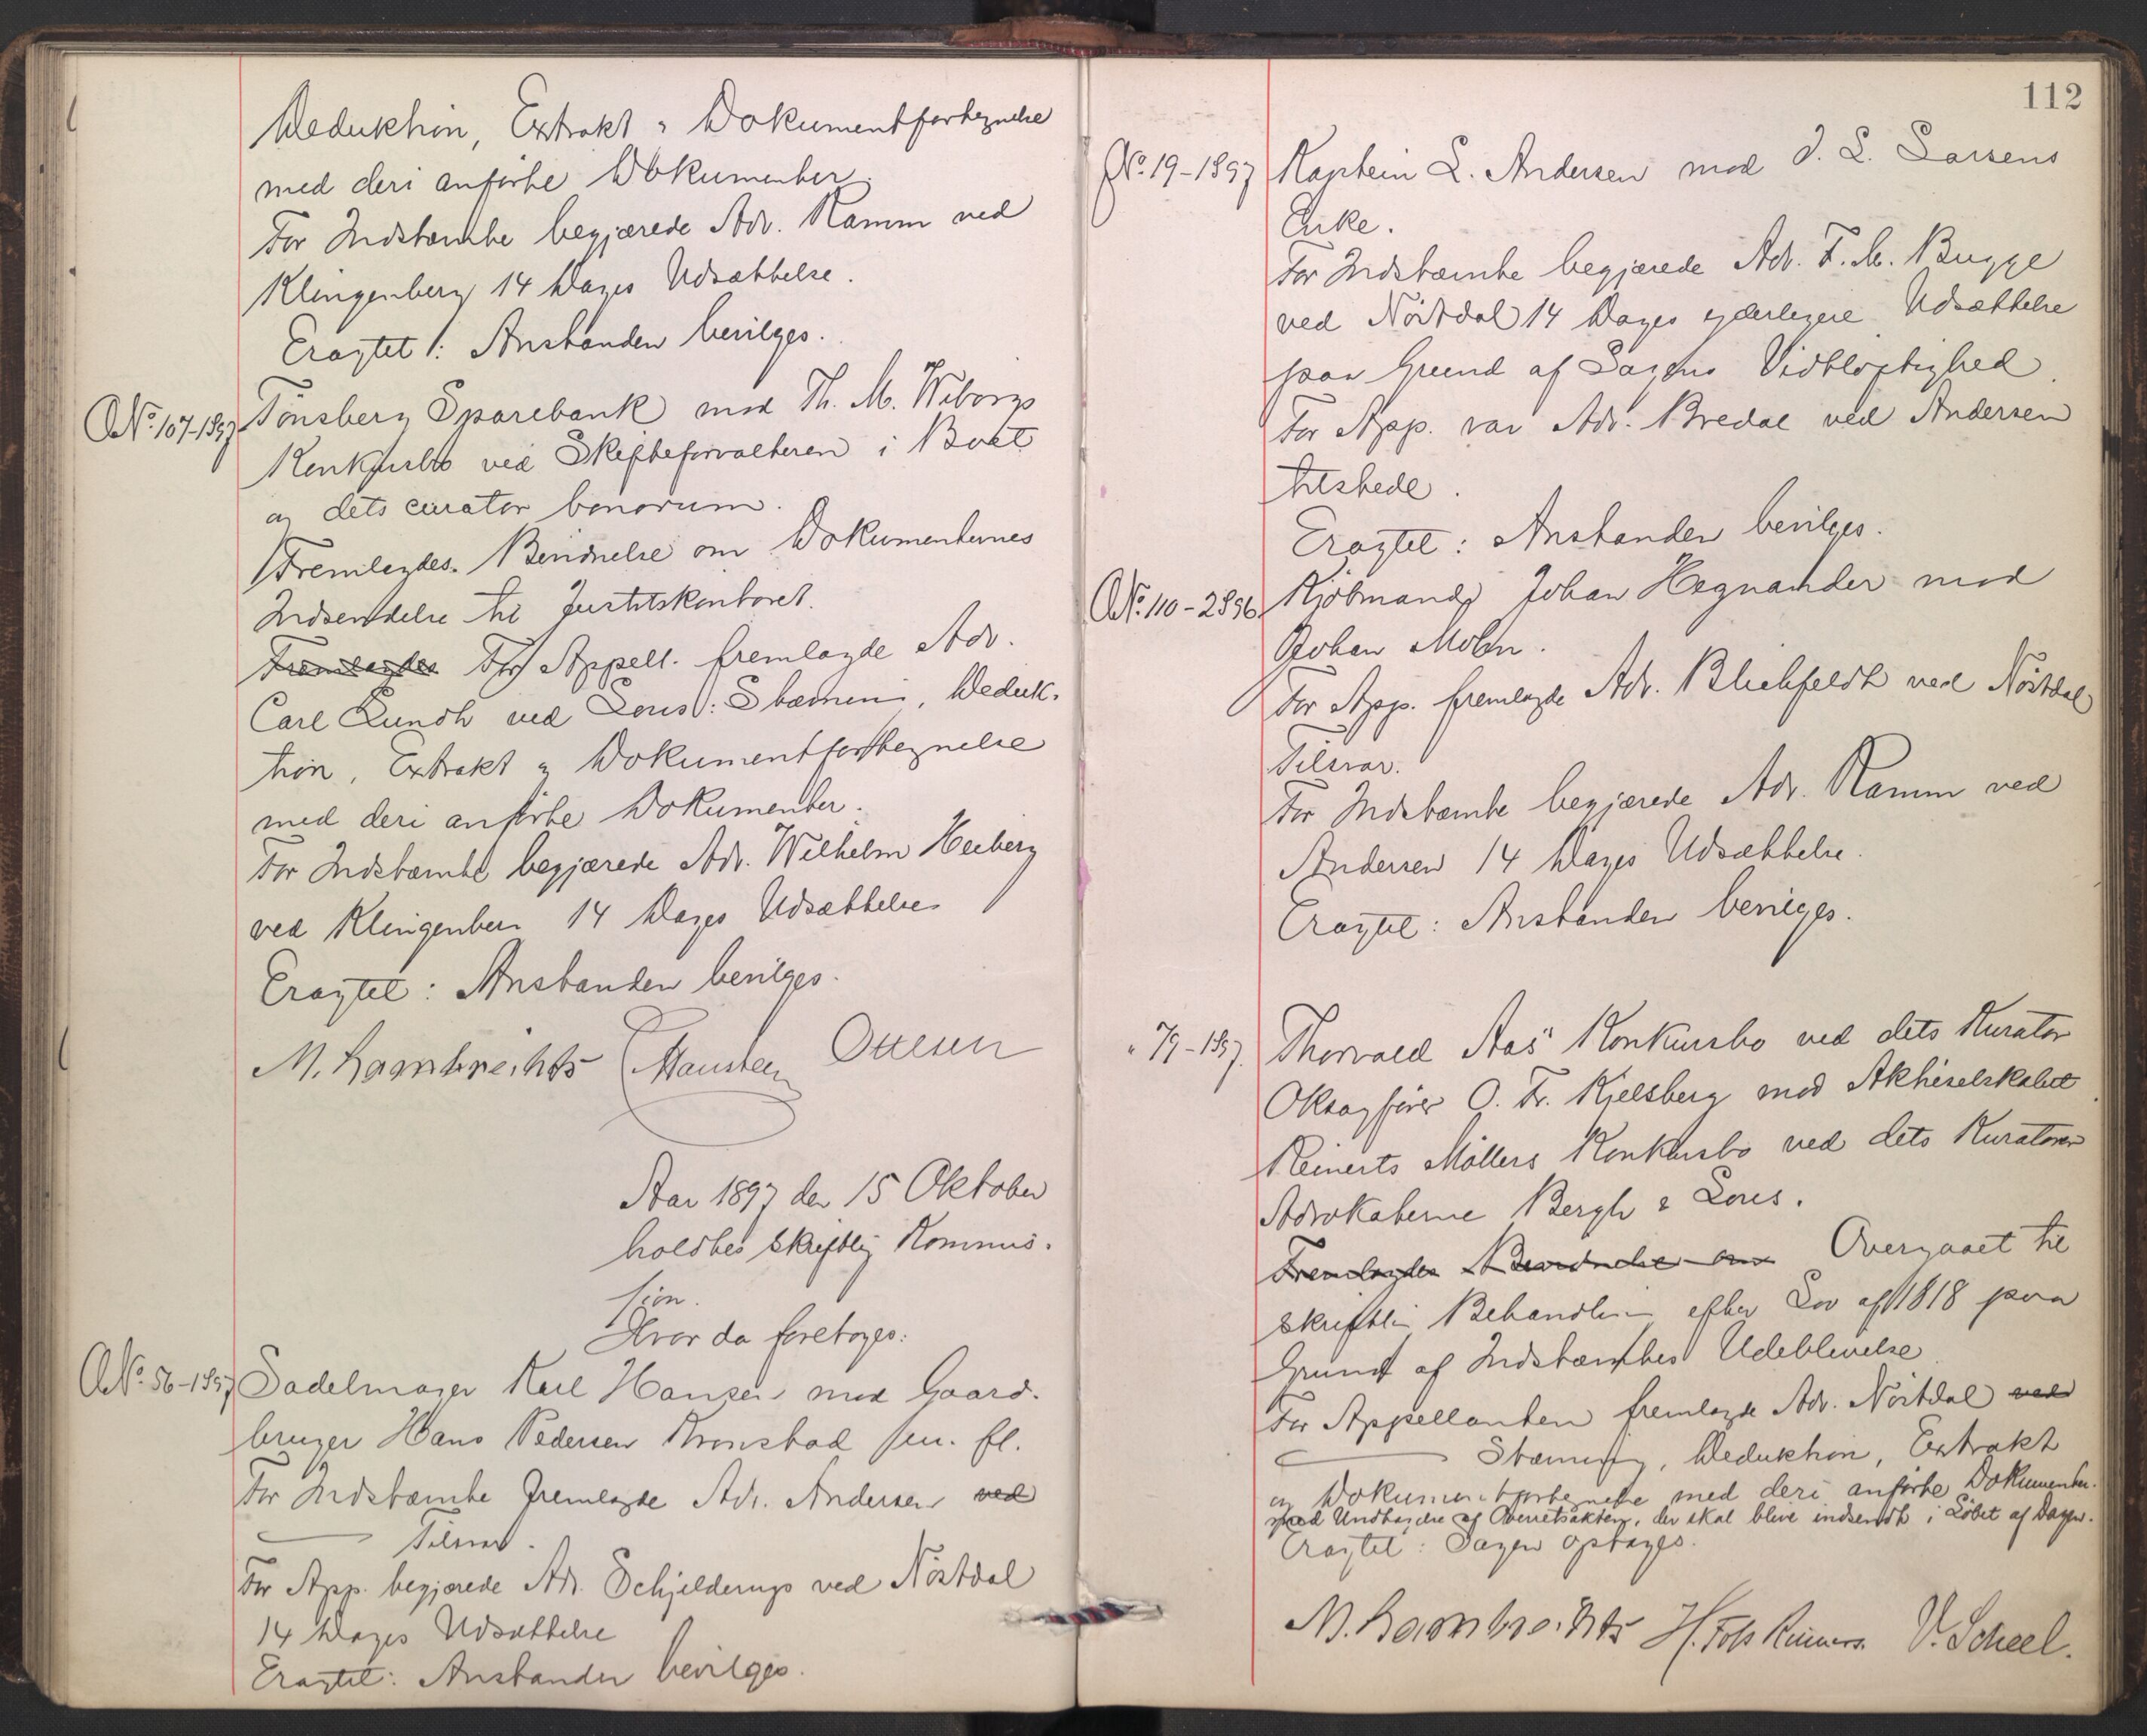 Deduktion, Extrakt & Dokumentfortegnelse
med deri anførte Dokumenter.
For Indstævnte begjærede Adv. Kamm ved
Klingenberg 14 Dages Udsættelse.
Eragtet: Anstanden bevilges.
No. 107-1897 Tönsberg Sparebank mod Th. M. Wiborgs
Konkursbo ved Skifteforvalteren i Boet
og dets curator bonorum.
Fremlagdes Bevidnelse om Dokumenternes
Indsendelse til Justitskontoret.
Fremlagdes For Appell. fremlagde Adv.
Carl Lundh ved Lous: Stævning, Deduk-
tion, Extrakt & Dokumentfortegnelse
med deri anførte Dokumenter.
For Indstævnte begjærede Adv. Wilhelm Heiberg
ved Klingenberg 14 Dages Udsættelse
Eragtet: Anstanden bevilges.
M. Lambrechts Hansteen Ottesen
Aar 1897 den 15 Oktober
holdtes skriftlig Kommis-
sion.
Hvor da foretoges:
No. 56-1897 Sadelmager Karl Hansen mod Gaard-
bruger Hans Pedersen Kronstad sen. fl.
For Indstævnte fremlagde Adv. Andersen ved
Tilsvar.
For App. begjærede Adv. Schjelderup ved Nöstdal
14 Dages Udsættelse
Eragtet: Anstanden bevilges.
112
No. 19-1897 Kaptein L. Andersen mod J. L. Larsens
Enke.
For Indstævnte begjærede Adv. F. M. Bugge
ved Nöstdal 14 Dages yderligere Udsættelse
paa Grund af Sagens Vidtløftighed.
For App. var Adv. Bredal ved Andersen
tilstede.
Eragtet: Anstanden bevilges.
No. 110-2896 Kjöbmand Johan Hegnander mod
Johan Mohn.
For App. fremlagde Adv. Blichfeldt ved Nöstdal
Tilsvar.
For Indstævnte begjærede Adv. Kamm ved
Andersen 14 Dages Udsættelse.
Eragtet: Anstanden bevilges.
" 79-1897. Thorvald Aas' Konkursbo ved dets Kurator
Oksagfører O. Fr. Kjelsberg mod Aktieselskabet
Reinerts Möllers Konkursbo ved dets Kuratorer
Advokaterne Bergh & Lous.
Fremlagdes Bevidnelse om Overgaaet til
skriftlig Behandling efter Lov af 1818 paa
Grund af Indstævntes Udeblivelse
For Appellanten fremlagde Adv. Nöstdal ved
Stævning, Deduktion, Extrakt
og Dokumentfortegnelse med deri anførte Dokumenter.
med Undtagelse af Overretsakten, der skal blive indsendt i Löbet af Dagen.
Eragtet: Sagen optages.
M. Lambrechts V. Scheel.